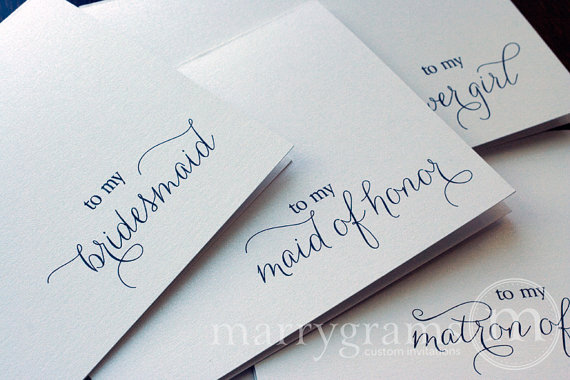 to my
bridesmaid
to my
maid of honor
to my
ver girl
to my
matron of
marrygrams
custom invitations
m